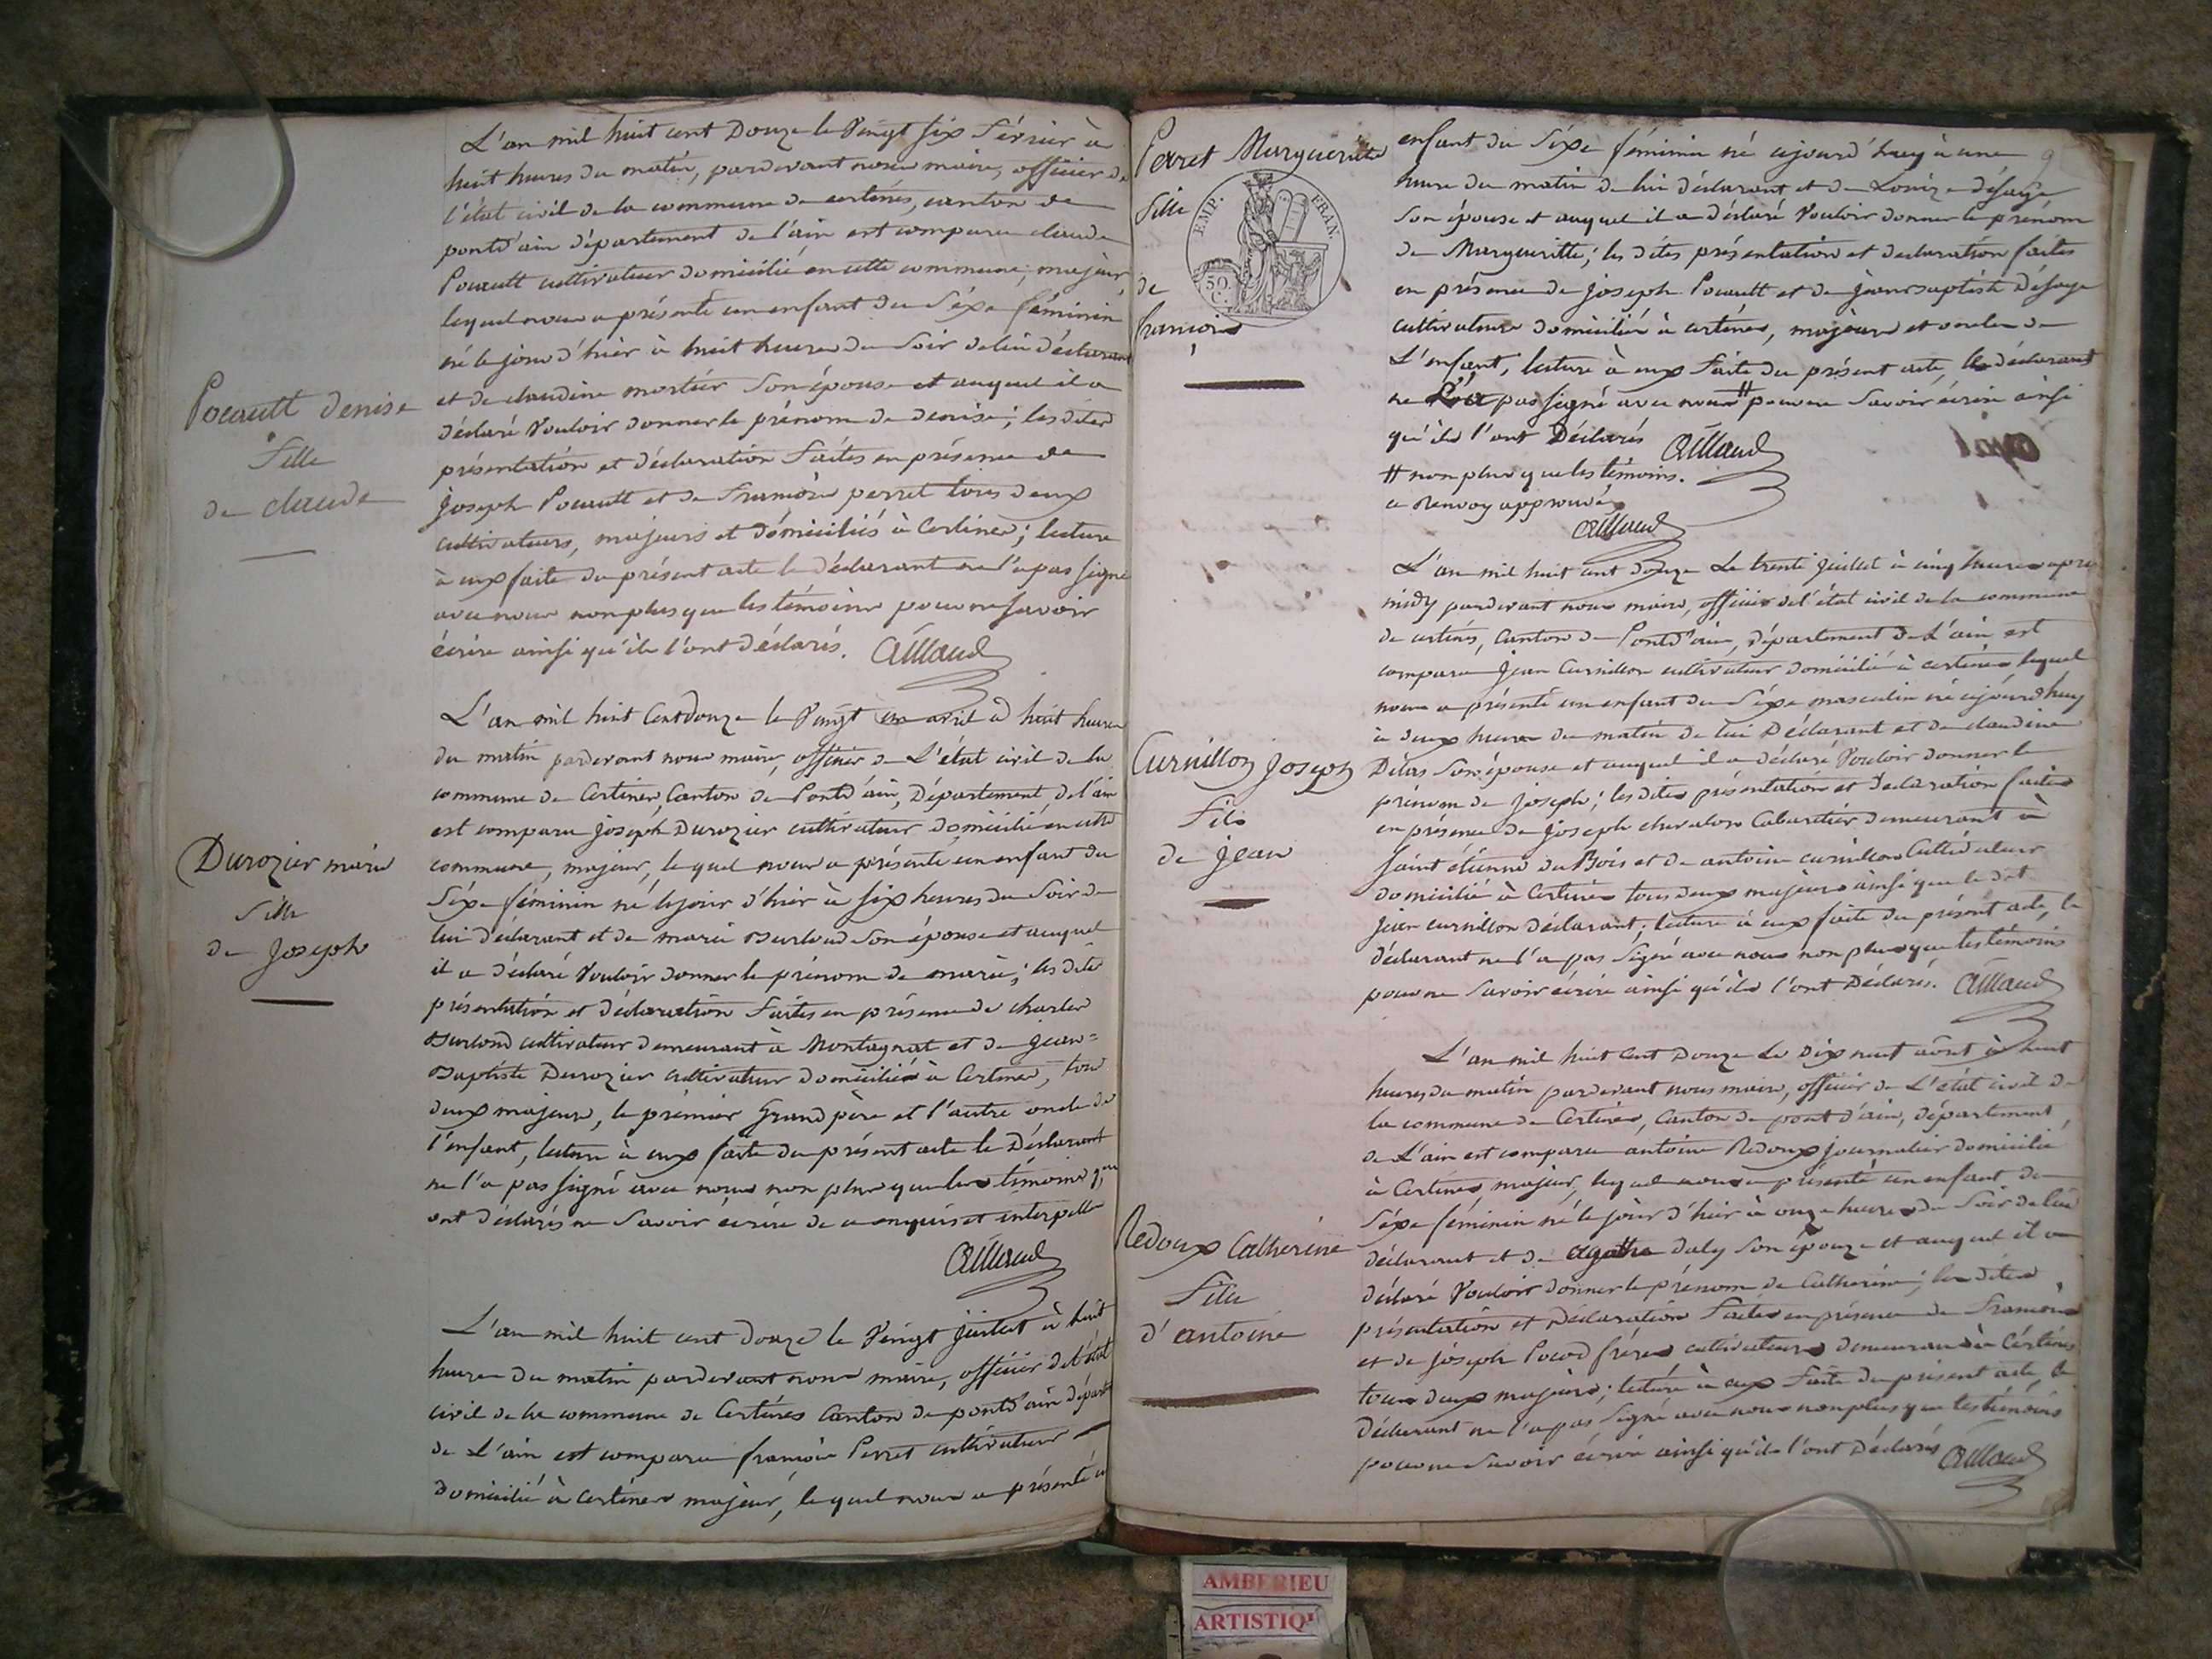 L'an mil huit cent Douze le Vingt six Février à
huit heures du matin, pardevant nous maire, officier de
l'état civil de la commune de certines, canton de
pontd'ain département de l'ain est comparu claude
Pocault cultivateur domicilié en cette commune, majeur,
lequel nous a présenté un enfant du Séxe féminin
né le jour d'hier à huit heures du Soir de lui déclarant
et de claudine mortier Son épouse et auquel il a
déclaré Vouloir donner le prénom de denise; les dites
présentation et déclaration Faites en présence de
joseph Pocault et de François perret tous deux
cultivateurs, majeurs et domiciliés à Certines; lecture
à eux faite du présent acte le déclarant ne l'a pas signé
avec nous non plus que les témoins pour ne Savoir
écrire ainsi qu'ils l'ont déclarés. Aillaud
Pocault denise
Fille
de claude
L'an mil huit Cent douze le Vingt un avril à huit heures
du matin pardevant nous maire, officier de L'état civil de la
commune de Certines, Canton de Pontd'ain, Département de l'ain
est comparu joseph Durozier cultivateur domicilié en cette
commune, majeur, lequel nous a présenté un enfant du
Séxe féminin né le jour d'hier à six heures du Soir de
lui déclarant et de marie Burloud Son épouse et auquel
il a déclaré Vouloir donner le prénom de marie; les dites
présentation et déclaration Faites en présence de charles
Burloud cultivateur demeurant à Montagnat et de jean=
Baptiste Durozier cultivateur domicilié à Certines, tous
deux majeurs, le prémier Grand père et l'autre oncle de
l'enfant, lecture à eux faite du présent acte le Déclarant
ne l'a pas signé avec nous non plus que les témoins qui
ont déclarés ne Savoir écrire de ce enquis et interpellé
Aillaud
Durozier marie
Fille
de Joseph
L'an mil huit cent douze le Vingt juillet à huit
heures du matin pardevant nous maire, officier de l'état
civil de la commune de Certines Canton de pontd'ain départ
de L'ain est comparu françois Perret cultivateur
domicilié à Certines majeur, lequel nous a présenté un
Perret Marguerite
fille
de
françois
EMP. FRAN.
50 C.
9
enfant du Séxe féminin né ajourd'huy à une
heure du matin de lui déclarant et de Louize défaye
Son épouse et auquel il a déclaré Vouloir donner le prénom
de Margueritte; les dites présentation et declaration faites
en présence de joseph Pocault et de jean baptiste Défaye
cultivateurs domiciliés à certines, majeurs et oncles de
L'enfant, lecture à eux Faite du présent acte, le déclarant
ne L'a pas signé avec nous # pour ne Savoir écrire ainsi
qu'ils l'ont Déclarés Aillaud
# non plus que les témoins.
ce Renvoy approuvé
Aillaud
L'an mil huit cent douze Le trente juillet à cinq heures après
midy pardevant nous maire, officier de l'état civil de la commune
de certines, Canton de Pontd'ain, département de L'ain est
comparu Jean Curnillon cultivateur domicilié à certines lequel
nous a présenté un enfant du Séxe masculin né ajourd'huy
à deux heures du matin de lui Déclarant et de claudine
Debas Son épouse et auquel il a déclaré Vouloir donner le
prénom de joseph; les dites présentation et declaration faites
en présence de joseph chevalon Cabaretier demeurant à
Saint étienne du Bois et de antoine curnillon Cultivateur
domicilié à Certines tous deux majeurs ainsi que le dit
jean curnillon déclarant; lecture à eux faite du présent acte, le
déclarant ne l'a pas signé avec nous non plus que les témoins
pour ne Savoir écrire ainsi qu'ils l'ont Déclarés. Aillaud
Curnillon Joseph
Fils
de Jean
L'an mil huit Cent Douze Le Dix neuf aôut à huit
heures du matin pardevant nous maire, officier de L'état civil de
la commune de Certines, Canton de pont d'ain, département
de L'ain est comparu antoine Redoux journalier domicilié
à Certines majeur, lequel nous a présenté un enfant du
Séxe féminin né le jour d'hier à onze heures du Soir de lui
déclarant et de agathe daly Son épouze et auquel il a
déclaré Vouloir donner le prénom de Catherine; les dites
présentation et Déclaration Faites en présence de François
et de joseph Pocod frères cultivateurs demeurans à Certines
tous deux majeurs; lecture à eux Faite du présent acte, le
Déclarant ne l'a pas signé avec nous non plus que les témoins
pour ne Savoir écrire ainsi qu'ils l'ont Déclarés Aillaud
Redoux Catherine
Fille
d'antoine
AMBERIEU
ARTISTIQ